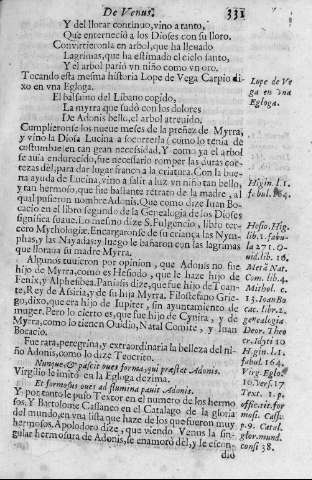 De Venus.
331
Y del llorar continuo, vino a tanto,
Que enterneciò a los Dioses con su lloro.
Convirtieronla en arbol, que ha llevado
Lagrimas, que ha estimado el cielo santo,
Y el arbol pariò vn niño como vn oro.
Tocando esta mesma historia Lope de Vega Carpio di-
xo en vna Egloga.
El balsamo del Libano cogido,
La myrra que sudò con los dolores
De Adonis bello, el arbol atreuido.
Cumplieronse los nueue meses de la preñez de Myrra,
y vino la Diosa Lucina a socorrerla (como lo tenia de
costumbre) en tan gran necessidad, Y como ya el arbol
se auia endurecido, fue necessario romper las duras cor-
tezas del, para dar lugar franco a la criatura. Con la bue-
na ayuda de Lucina, vino a salir a luz vn niño tan bello,
y tan hermoso, que fue bastante retrato de la madre, al
qual pusieron nombre Adonis. Que como dize Iuan Bo-
cacio en el libro segundo de la Genealogia de los Dioses
significa suaue. Lo mesmo dize S. Fulgencio, libro ter-
cero Mythologiæ. Encargaronse de su criança las Nym-
phas, y las Nayadas; y luego le bañaron con las lagrimas
que lloraua su madre Myrra.
Algunos tuuieron por opinion, que Adonis no fue
hijo de Myrra, como es Hesiodo, que le haze hijo de
Fenix, y Alphesibea. Paniasis dize, que fue hijo de Toan-
te, Rey de Assiria, y de su hija Myrra. Filostefano Grie-
go, dixo, que era hijo de Iupiter, sin ayuntamiento de
muger. Pero lo cierto es, que fue hijo de Cynira, y de
Myrra, como lo tienen Ouidio, Natal Comite, y Iuan
Bocacio.
Fue rara, peregrina, y extraordinaria la belleza del ni-
ño Adonis, como lo dize Teucrito.
Nunquè, & pastir oues forma, qui præstat Adonis.
Virgilio le imitò en la Egloga dezima.
Et formosus oues ad flumina pauit Adonis.
Y por tanto le puso Textor en el numero de los hermo-
sos. Y Bartolome Cassaneo en el Catalago de la gloria
del mundo, en vna lista que haze de los que fueron muy
hermosos. Apolodoro dize, que viendo Venus la sin-
gular hermosura de Adonis, se enamorò del, y le escon-
diò
Lope de Ve
ga en vna
Egloga.
Higin. l. 1.
fabul. 164.
Hosio. Hig.
lib. 1. fabu-
la 271. O-
uid. lib. 10.
Metā Nat.
Com. lib. 4.
Mithol. c.
13. Ioan Bo
cac. libr. 2.
genealogia
Deor. Theo
cr. Idyti 10
Higin. l. 1.
fabul. 164.
Virg. Eglo.
10. Vers. 17
Text. 1. p.
offic. tit. for
mosi. Cass.
p. 9. Catal.
glor. mund.
consi 38.